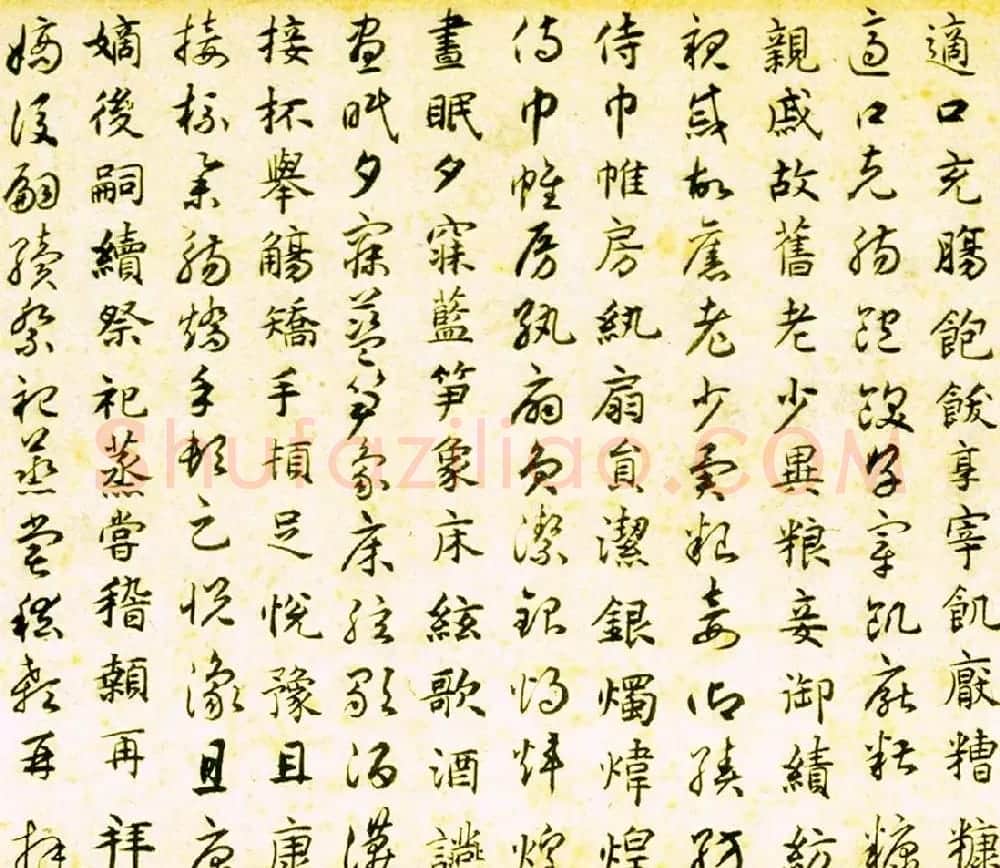 適口充腸飽飫享宰飢厭糟糠
適口充腸飽飫享宰飢厭糟糠
親戚故舊老少異粮妾御績紡
親戚故舊老少異粮妾御績紡
侍巾帷房紈扇員潔銀燭煒煌
侍巾帷房紈扇員潔銀燭煒煌
晝眠夕寐藍笋象床絃歌酒讌
晝眠夕寐藍笋象床絃歌酒讌
接杯舉觴矯手頓足悅豫且康
接杯舉觴矯手頓足悅豫且康
嫡後嗣續祭祀蒸嘗稽顙再拜
嫡後嗣續祭祀蒸嘗稽顙再拜
Shufaziliao.COM